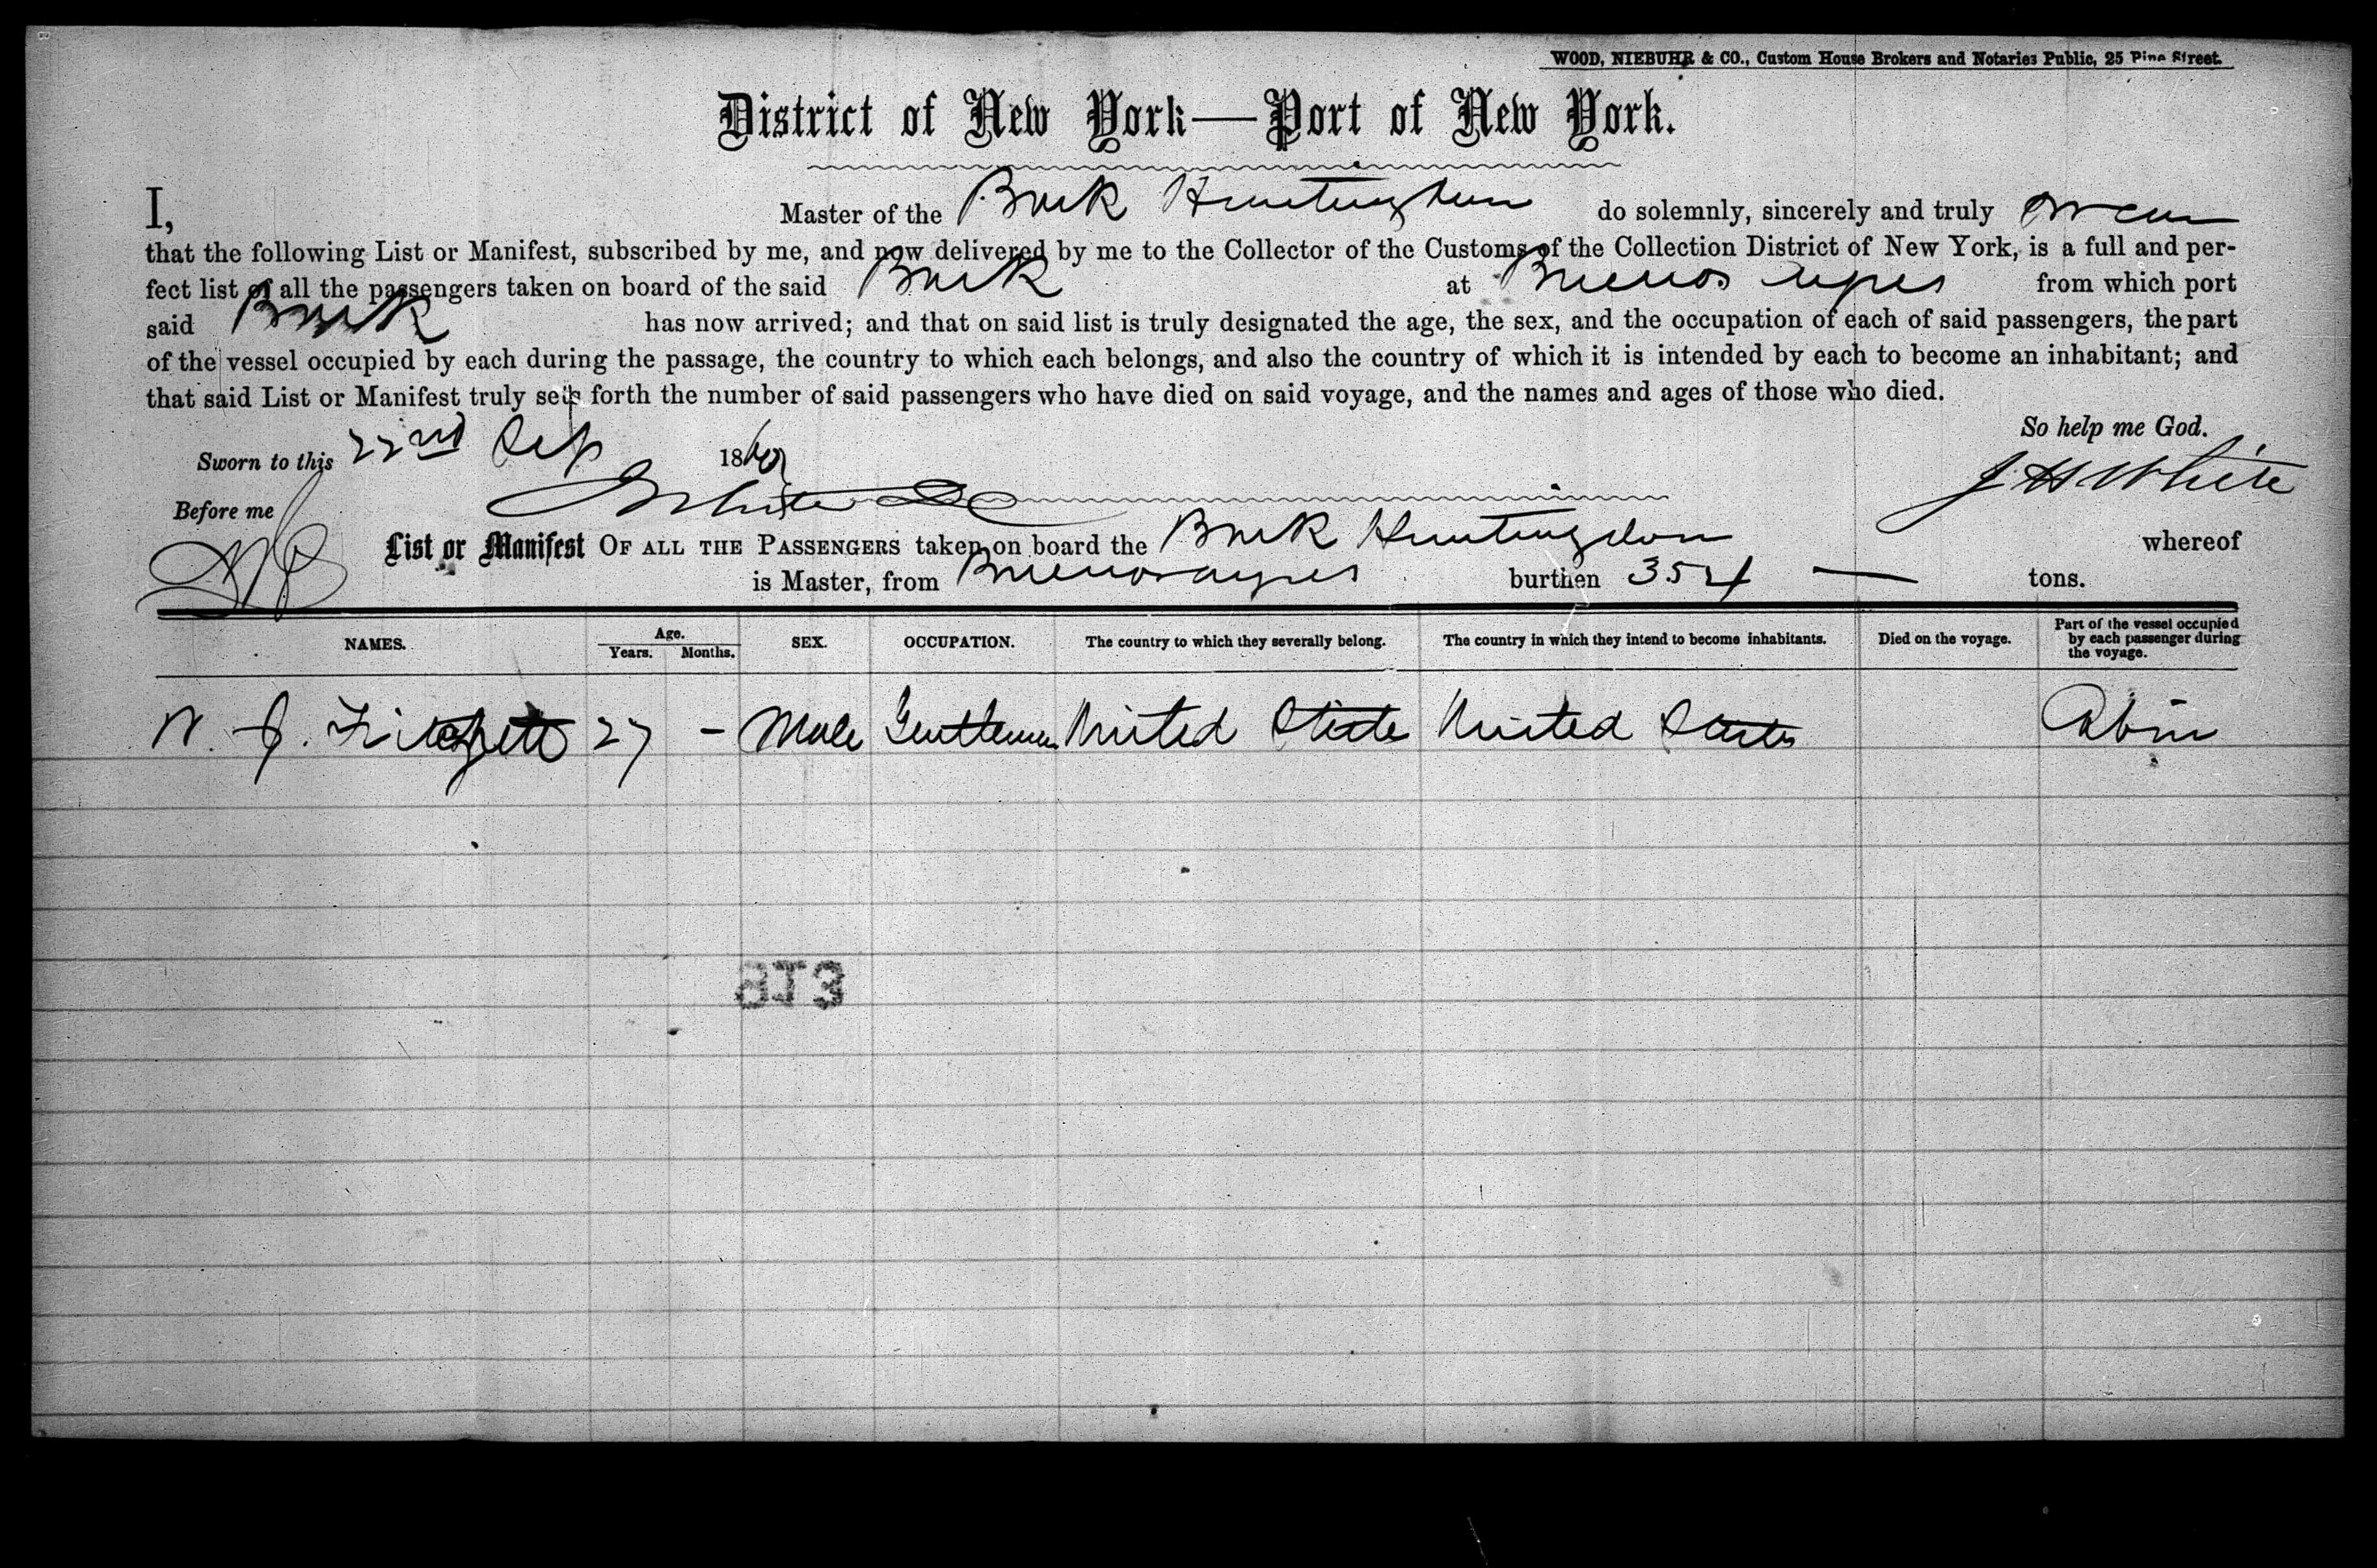 WOOD, NIEBUHR & CO., Custom House Brokers and Notaries Public, 25 Pine Street.
District of New York—Port of New York.
I, Master of the Bark Huntingdon do solemnly, sincerely and truly swear
that the following List or Manifest, subscribed by me, and now delivered by me to the Collector of the Customs of the Collection District of New York, is a full and per-
fect list of all the passengers taken on board of the said Bark at Buenos Ayres from which port
said Bark has now arrived; and that on said list is truly designated the age, the sex, and the occupation of each of said passengers, the part
of the vessel occupied by each during the passage, the country to which each belongs, and also the country of which it is intended by each to become an inhabitant; and
that said List or Manifest truly sets forth the number of said passengers who have died on said voyage, and the names and ages of those who died.
So help me God.
Sworn to this 22nd Sep 186
J H White
Before me
List or Manifest OF ALL THE PASSENGERS taken on board the Bark Huntingdon whereof
White is Master, from Buenos ayres burthen 354 — tons.
NAMES. Age. Years. Months. SEX. OCCUPATION. The country to which they severally belong. The country in which they intend to become inhabitants. Died on the voyage. Part of the vessel occupied by each passenger during the voyage.
27 - Male Gentleman United State United States Cabin